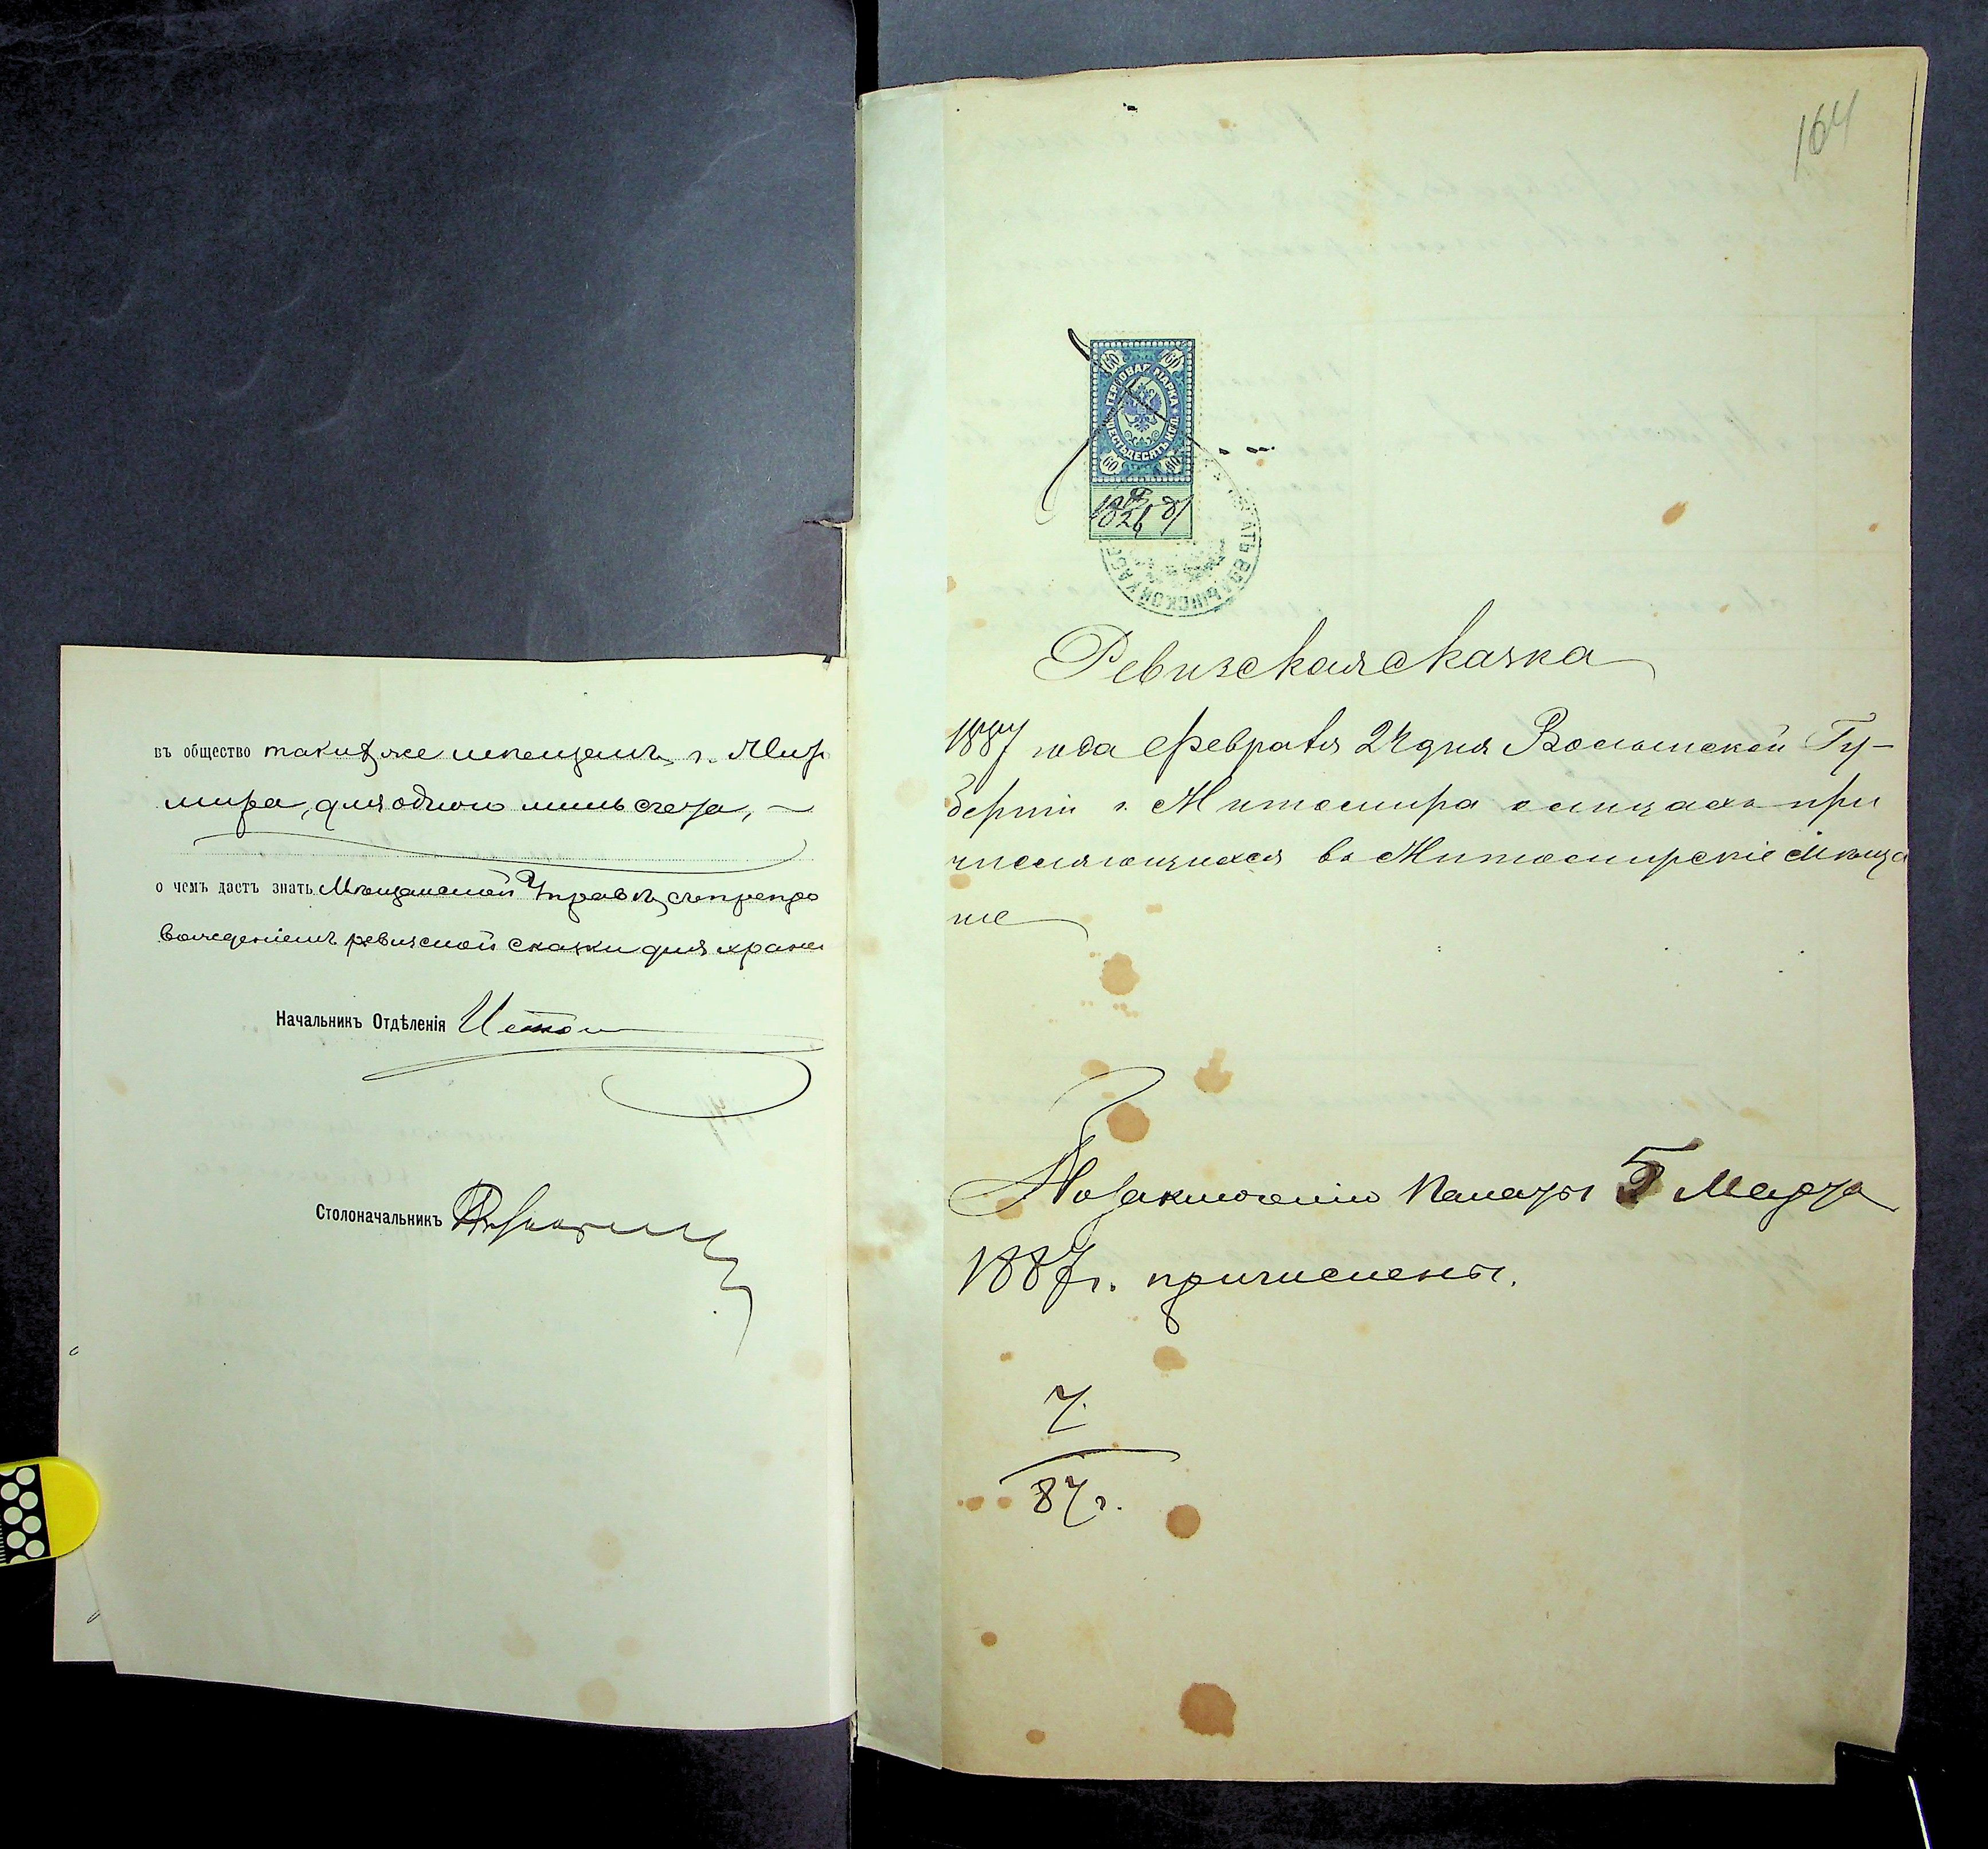 въ общество такихъ же мѣщанъ, г. Жито
мира, для одного лишь счета, —
о чемъ дастъ знать Мѣщанской Управѣ, съ препро
вожденіемъ ревизской сказки для хране
Начальникъ Отдѣленія
Столоначальникъ
164
60 60
ГЕРБОВАЯ МАРКА
ШЕСТЬДЕСЯТЪ КОП.
60 60
Ревизская сказка
1887 года Февраля 24 дня Волынской Гу-
берніи г. Житомира о лицахъ при
числяющихся въ Житомирскіе Мѣща
не
По заключенію Палаты 5 Марта
1887 г. причислены.
7.
87 г.